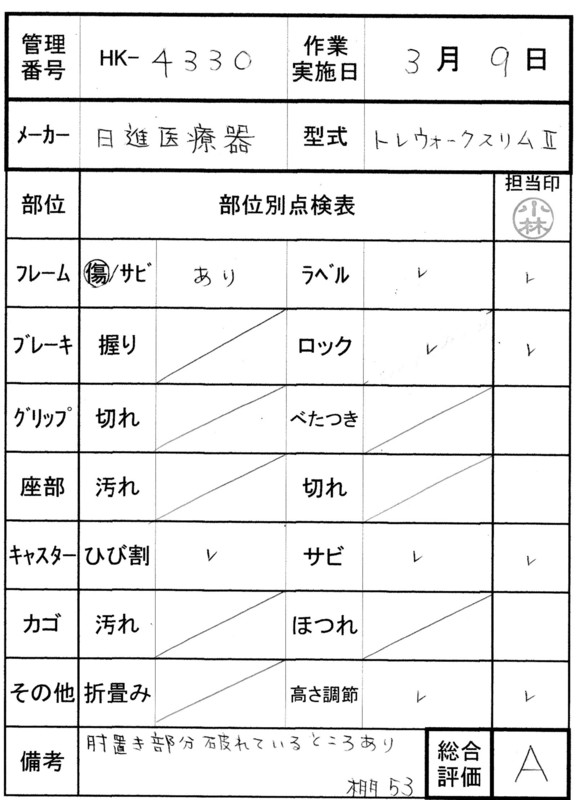 管理番号 HK-4330 作業実施日 3月9日
メーカー 日進医療器 型式 トレウォークスリムⅡ
部位 部位別点検表 担当印 小林
フレーム 傷/サビ あり ラベル ✓ ✓
ブレーキ 握り ロック ✓ ✓
グリップ 切れ べたつき
座部 汚れ 切れ
キャスター ひび割 ✓ サビ ✓ ✓
カゴ 汚れ ほつれ
その他 折畳み 高さ調節 ✓ ✓
備考 肘置き部分破れているところあり
棚53
総合評価 A